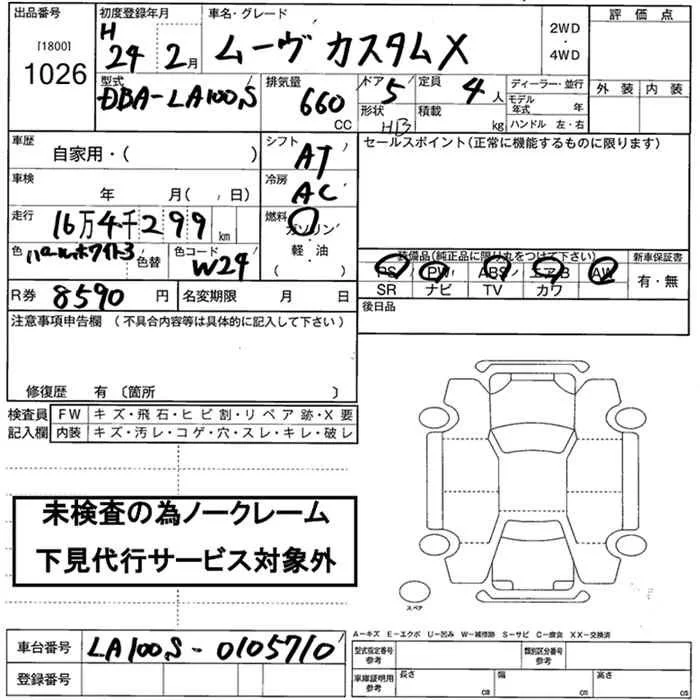 出品番号
[1800]
1026
初度登録年月
H
24 2月
車名・グレード
ムーヴ カスタムX
2WD
・
4WD
評価点
外装 内装
型式
DBA-LA100S
排気量
660
CC
ドア 5
形状 HB
定員 4 人
積載 kg
ディーラー・並行
モデル年式 年
ハンドル 左・右
車歴
自家用・( )
シフト
AT
セールスポイント(正常に機能するものに限ります)
車検
年 月( 日)
冷房
AC
走行
16万4千299km
燃料
ガソリン・
軽・油
( )
色
パールホワイト3
色替
色コード
W24
装備品(純正品に限り丸をつけて下さい)
PS PW ABS エアB AW
SR ナビ TV カワ
新車保証書
有・無
R券 8590 円
名変期限 月 日
後日品
注意事項申告欄 (不具合内容等は具体的に記入して下さい)
修復歴 有 〔箇所 〕
検査員
記入欄
FW キズ・飛石・ヒビ割・リペア跡・X要
内装 キズ・汚レ・コゲ・穴・スレ・キレ・破レ
未検査の為ノークレーム
下見代行サービス対象外
スペア
A-キズ E-エクボ U-凹み W-補修跡 S-サビ C-腐食 XX-交換済
車台番号 LA100S-0105710
登録番号
型式指定番号
参考
類別区分番号
参考
車庫証明用
参考
長さ cm
幅 cm
高さ cm